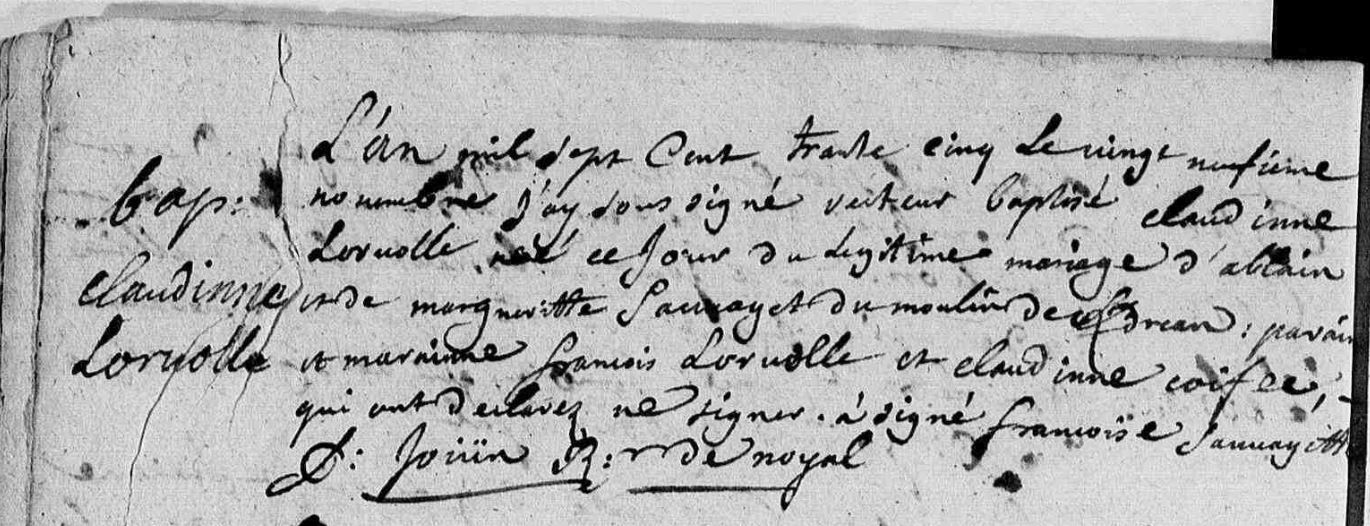 L'an mil sept Cent trante cinq Le vingt neufieme
bap: novembre j'ay sous signé recteur baptisé claudinne
Lorvolle né ce Jour du Legitime mariage d'allain
claudinne et de margueritte Sauvayet du moulin de : parain
Lorvolle et marainne francois Lorvolle et claudinne coifee,
qui ont declarez ne signer. à signé francoise Sauvayette
Jouin R: de noyal